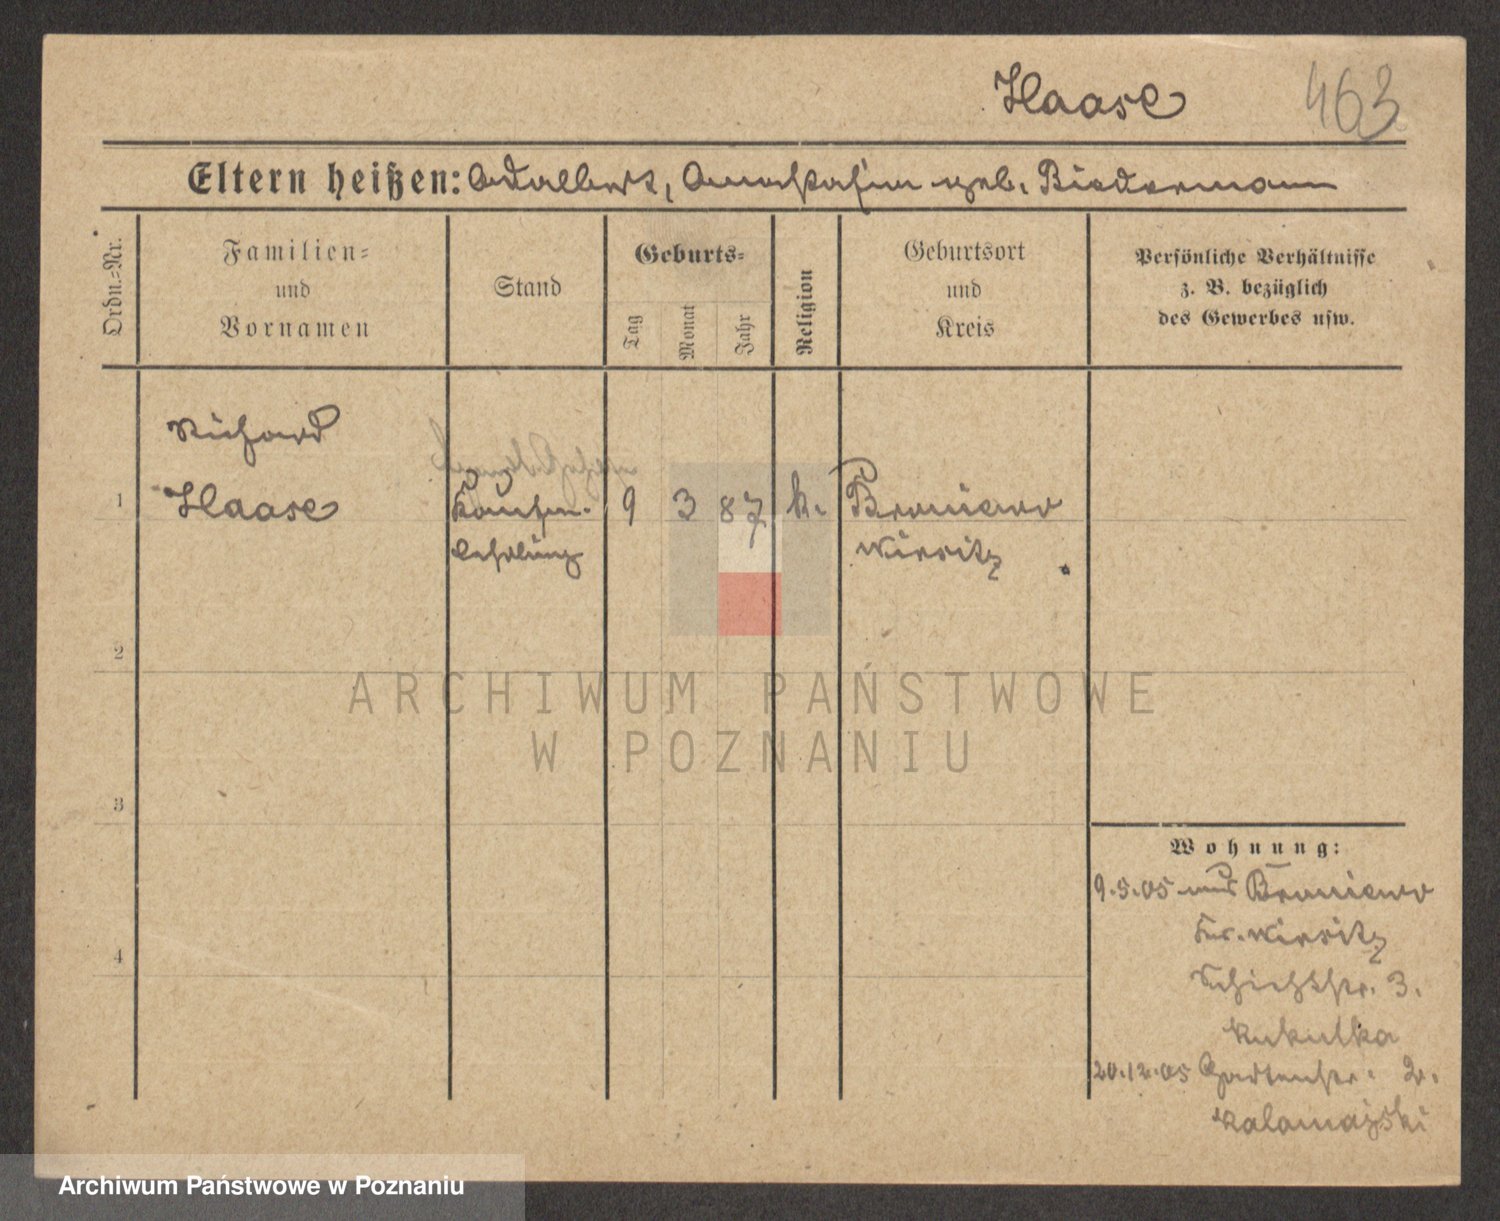 Haase 463
Eltern heißen: Adalbert, Anastasia geb. Biedermann
Ordn.=Nr.
Familien=
und
Vornamen
Stand
Geburts=
Tag
Monat
Jahr
Religion
Geburtsort
und
Kreis
Persönliche Verhältnisse
z. B. bezüglich
des Gewerbes usw.
Richard
1 Haase Kaufm. 9 3 87 k. Broniewo
lehrling Wirsitz
2
3
4
Wohnung:
9.5.05 aus Broniewo
Kr. Wirsitz
Schichtstr. 3.
Kukulka
20.12.05 Gartenstr. 2.
Kalamajski
ARCHIWUM PAŃSTWOWE
W POZNANIU
Archiwum Państwowe w Poznaniu